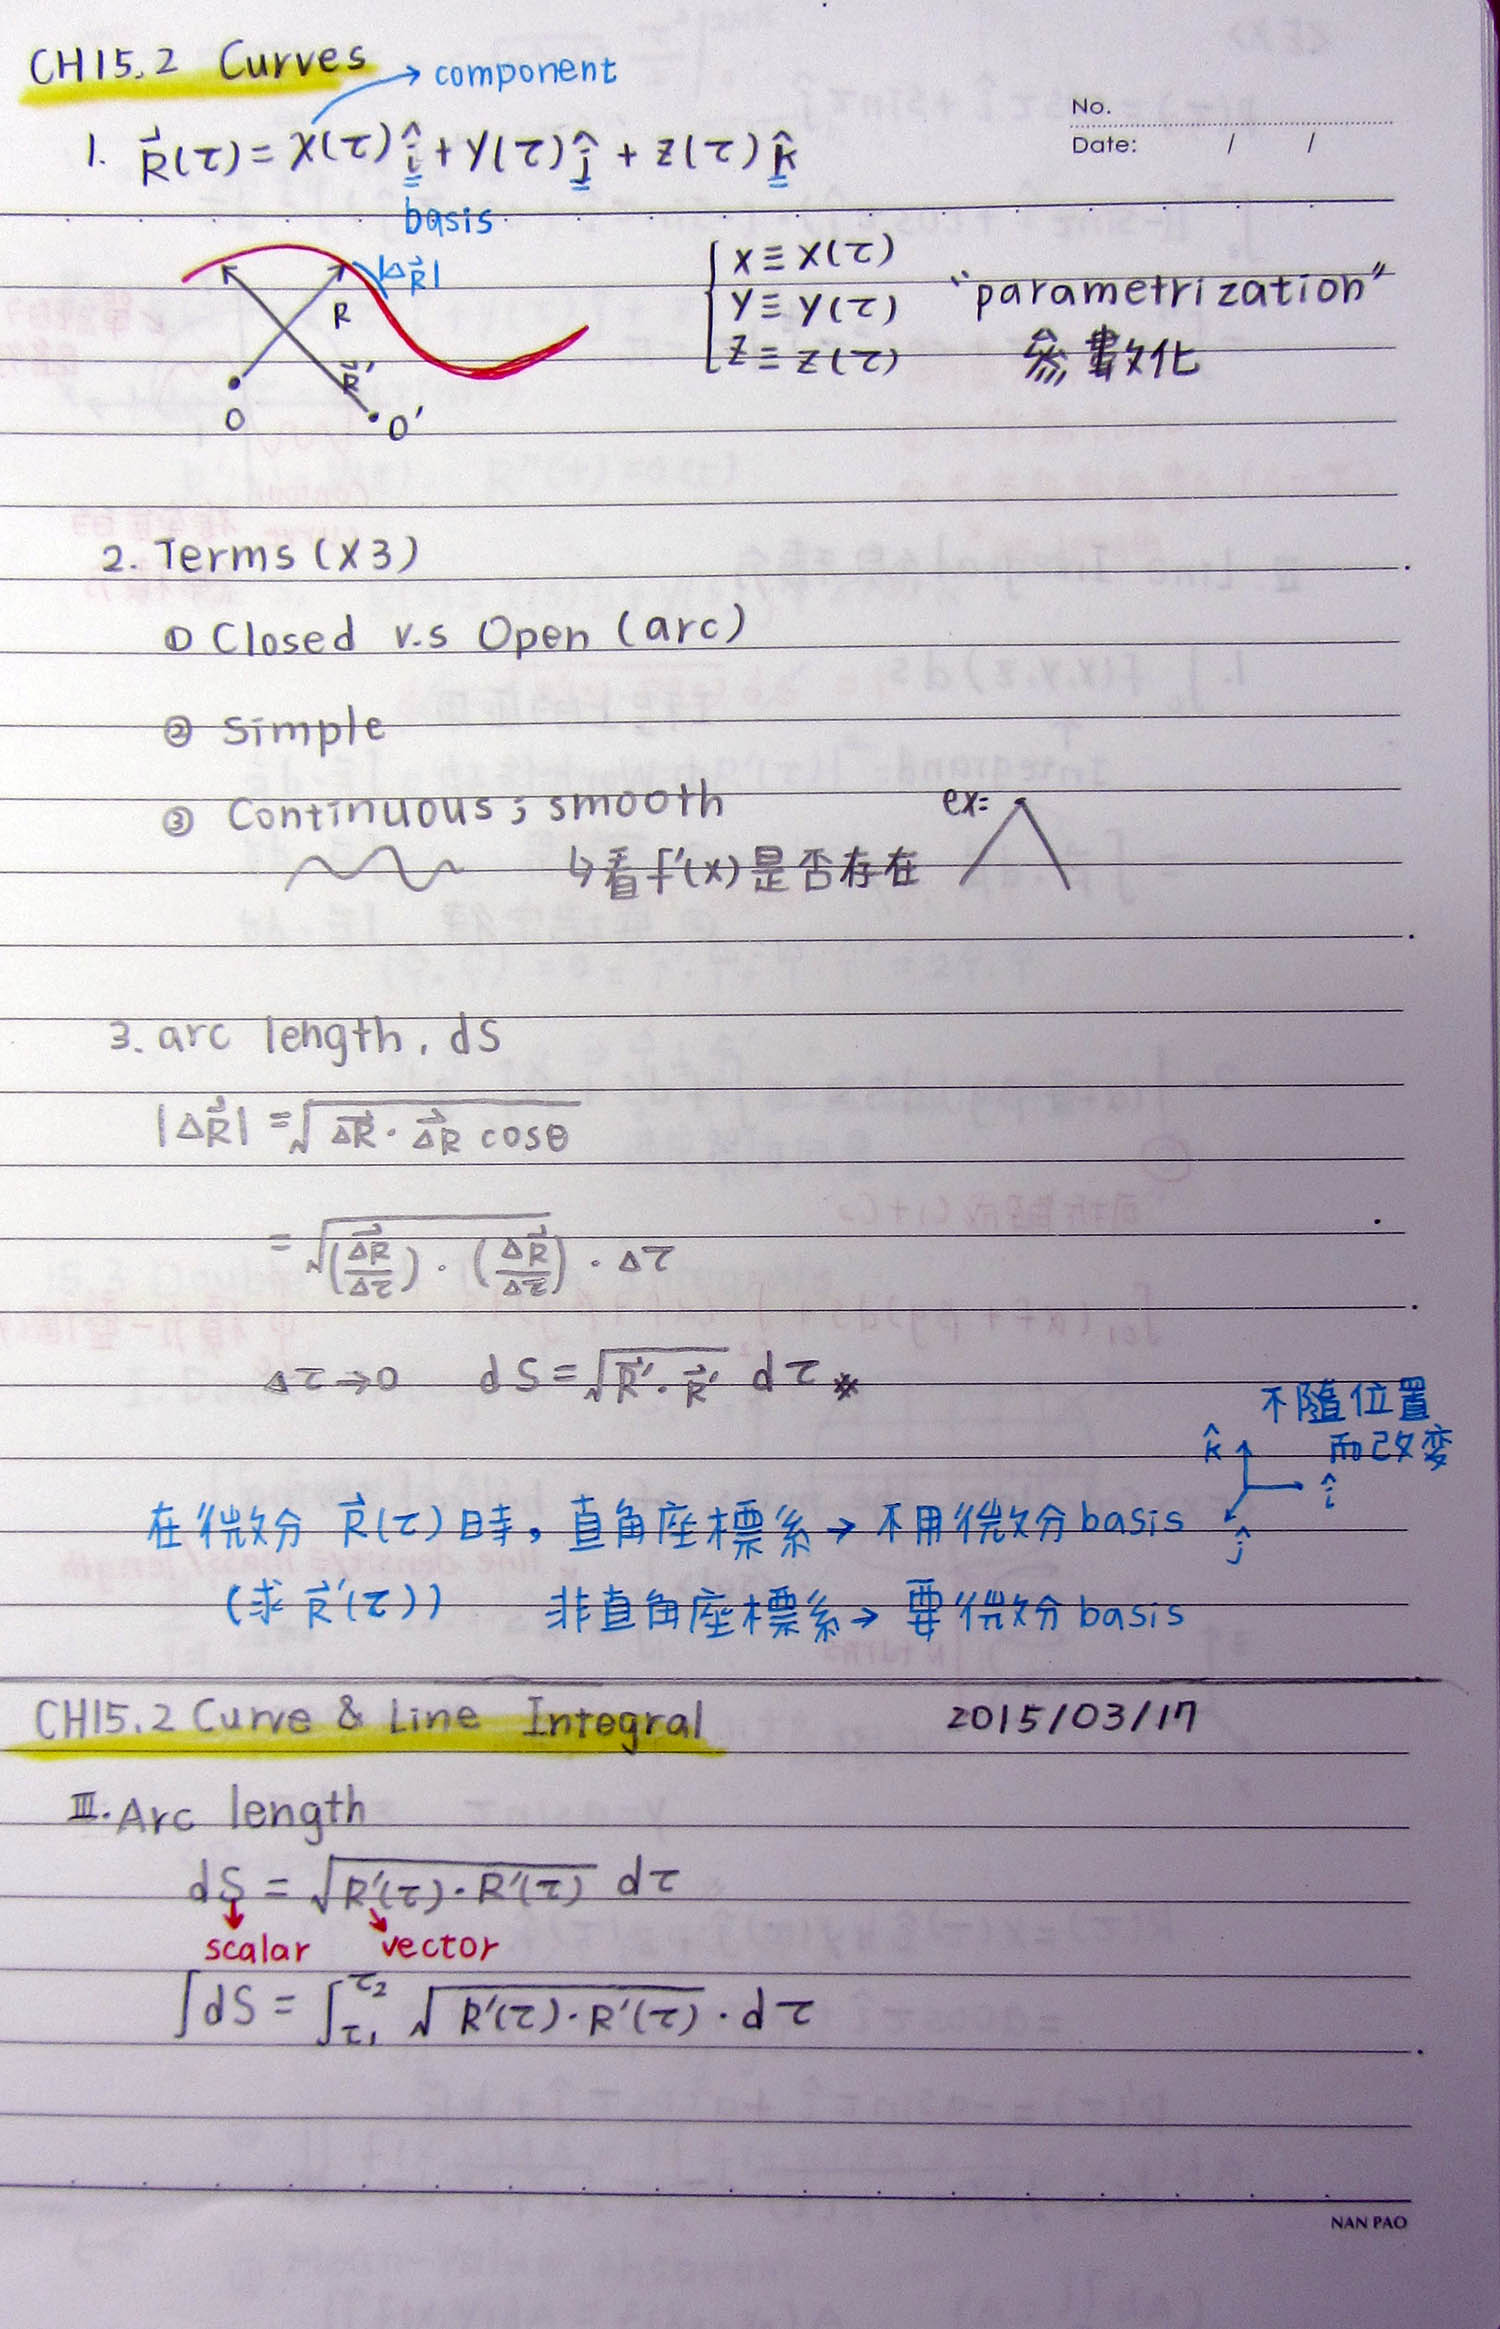 CH15.2 Curves
component
No.
Date: / /
1. R⃗(τ) = X(τ)î + Y(τ)ĵ + Z(τ)k̂
basis
|ΔR⃗|
R
R⃗'
O
O'
X ≡ X(τ)
Y ≡ Y(τ)
Z ≡ Z(τ)
"parametrization"
參數化
2. Terms (X3)
① Closed v.s Open (arc)
② Simple
③ Continuous; smooth
ex:
↳看f'(x)是否存在
3. arc length, dS
|ΔR⃗| = √(ΔR⃗ · ΔR⃗ cosθ)
= √((ΔR⃗/Δτ) · (ΔR⃗/Δτ)) · Δτ
Δτ→0 dS = √(R⃗' · R⃗') dτ *
不隨位置
而改变
k̂
î
ĵ
在微分 R⃗(τ)時,直角座標系→不用微分basis
(求 R⃗'(τ)) 非直角座標系→要微分basis
CH15.2 Curve & Line Integral 2015/03/17
III. Arc length
dS = √(R'(τ) · R'(τ)) dτ
scalar vector
∫dS = ∫τ₁^τ₂ √(R'(τ) · R'(τ)) · dτ
NAN PAO